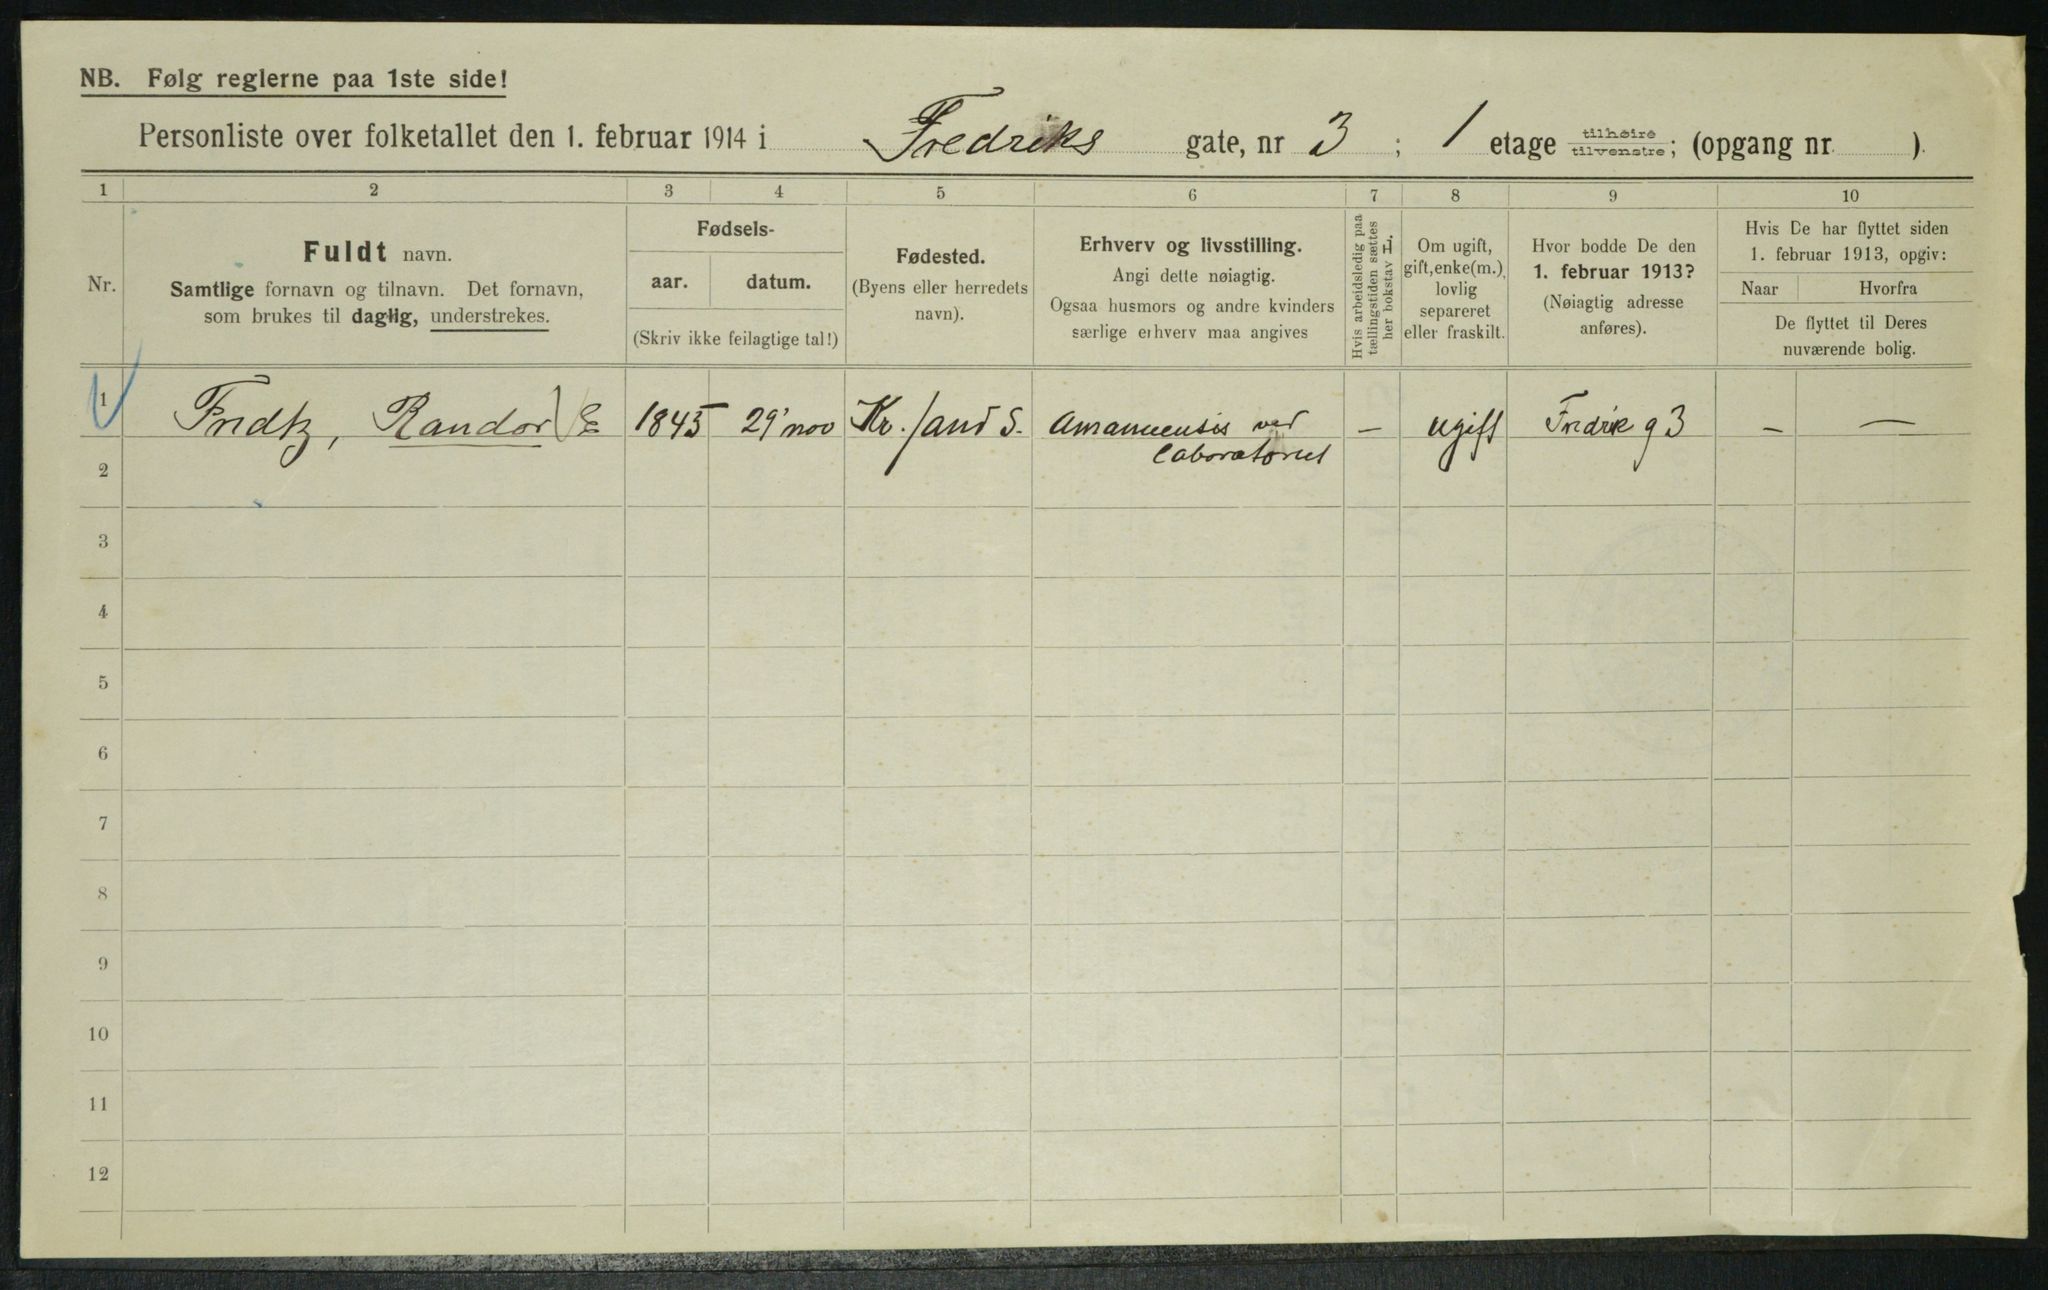 NB. Følg reglerne paa 1ste side!
Personliste over folketallet den 1. februar 1914 i Fredriks gate, nr 3 ; 1 etage tilhøire tilvenstre; (opgang nr ).
1 2 3 4 5 6 7 8 9 10
Nr.
Fuldt navn.
Samtlige fornavn og tilnavn. Det fornavn,
som brukes til daglig, understrekes.
Fødsels-
aar. datum.
(Skriv ikke feilagtige tal!)
Fødested.
(Byens eller herredets
navn).
Erhverv og livsstilling.
Angi dette nøiagtig.
Ogsaa husmors og andre kvinders
særlige erhverv maa angives
Hvis arbeidsledig paa
tællingstiden sættes
her bokstav L.
Om ugift,
gift, enke(m.),
lovlig
separeret
eller fraskilt.
Hvor bodde De den
1. februar 1913?
(Nøiagtig adresse
anføres).
Hvis De har flyttet siden
1. februar 1913, opgiv:
Naar Hvorfra
De flyttet til Deres
nuværende bolig.
1 Fridtz, Randor E 1845 29' nov Kr./and S. Amanuensis ved — ugift Fredrik g 3 — —
Laboratoriet
2
3
4
5
6
7
8
9
10
11
12